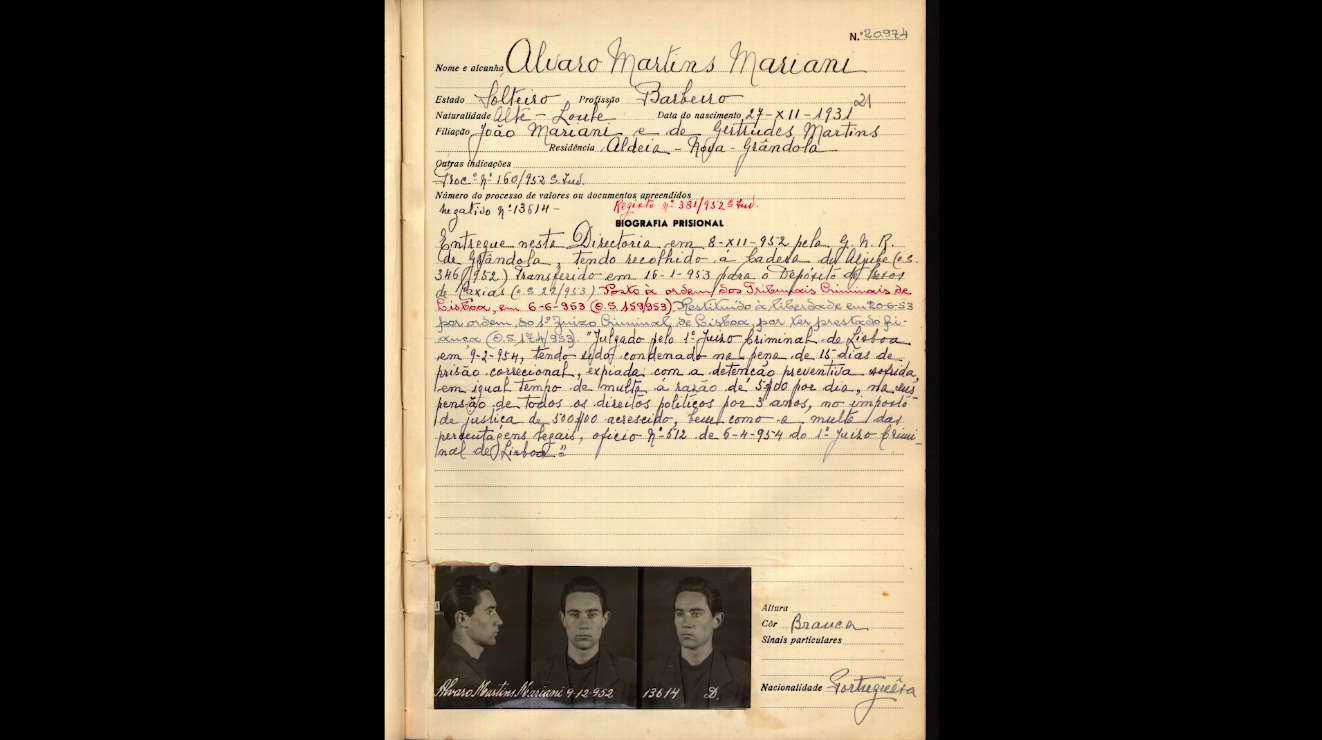 N.º 20974
Nome e alcunha Alvaro Martins Mariani
Estado Solteiro Profissão Barbeiro 21
Naturalidade Alte - Loulé Data do nascimento 27-XII-1931
Filiação João Mariani e de Gertrudes Martins
Residência Aldeia - Nova - Grândola
Outras indicações
Proc.º Nº 160/952 S. Jud.
Número do processo de valores ou documentos apreendidos
Negativo nº 13614 - Registo nº 381/952 S. Jud.
BIOGRAFIA PRISIONAL
Entregue nesta Directoria em 8-XII-952 pela G. N. R.
de Grândola, tendo recolhido á Cadeia do Aljube (O.S.
346/952) Transferido em 16-1-953 para o Depósito de Presos
de Caxias (O.S. 22/953) Posto à ordem dos Tribunais Criminais de
Lisboa, em 6-6-953 (O.S. 159/953). Restituido à liberdade em 20-6-53
por ordem do 1º Juizo Criminal de Lisboa, por ter prestado fi-
ança (O.S. 174/953). "Julgado pelo 1º Juizo Criminal de Lisboa
em 9-2-954, tendo sido condenado na pena de 15 dias de
prisão correcional, expiada com a detenção preventiva sofrida,
em igual tempo de multa á razão de 5$00 por dia, na sus
pensão de todos os direitos politicos por 3 anos, no imposto
de justiça de 500$00 acrescido, bem como a multa das
percentagens legais, oficio Nº 612 de 6-4-954 do 1º Juizo Crimi-
nal de Lisboa."
Altura
Côr Branca
Sinais particulares
Nacionalidade Portuguêsa
Alvaro Martins Mariani 9-12-952 13614 D.